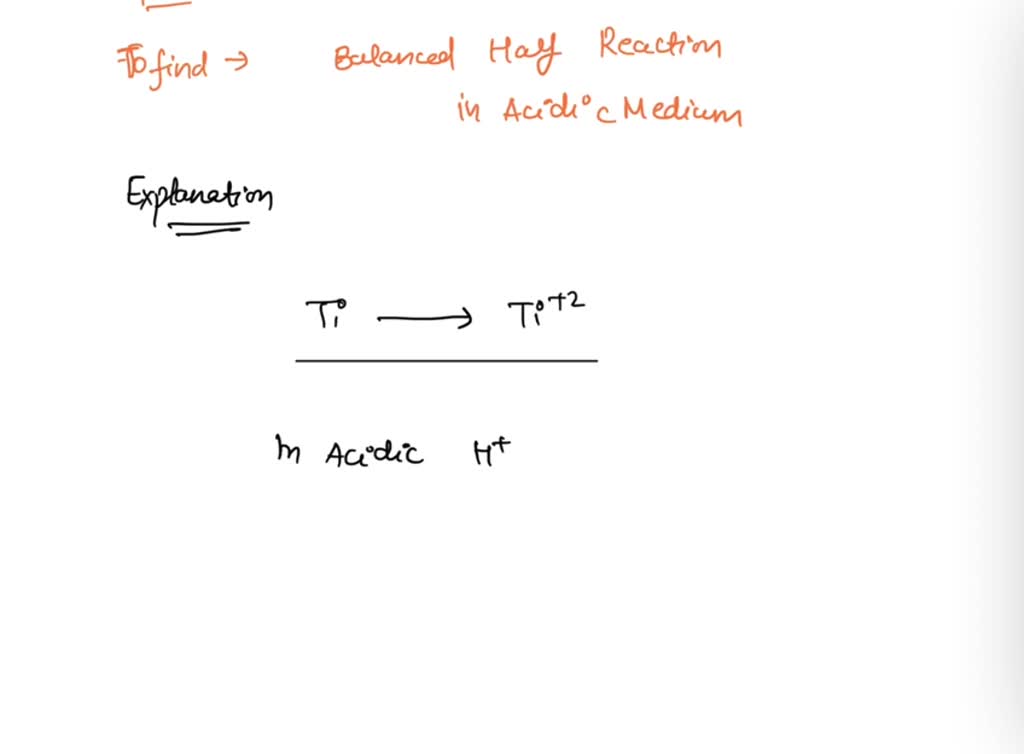 To find → Balanced Half Reaction
in Acidic Medium
Explanation
Ti ⟶ Ti⁺²
In Acidic H⁺